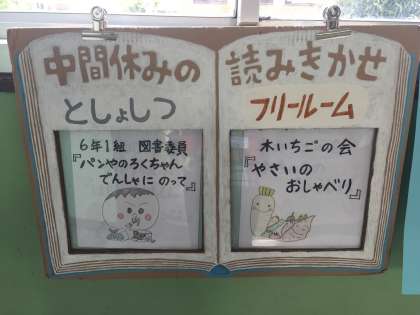 中間休みの
としょしつ
6年1組 図書委員
『パンやのろくちゃん
でんしゃに のって』
読みきかせ
フリールーム
木いちごの会
『やさいの
おしゃべり』